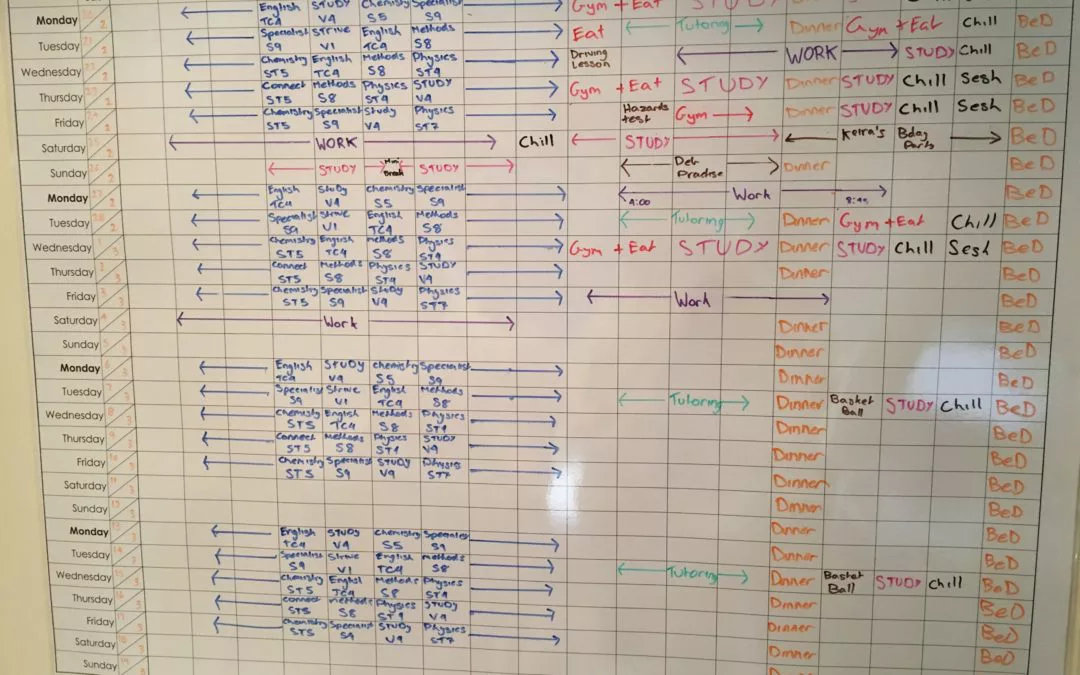 Gym + Eat STUDY
Monday English STUDY Chemistry Specialist
TC4 V4 S5 S9
Tuesday Specialist STRIVE English Methods Eat Tutoring Dinner Gym + Eat Chill BeD
S9 V1 TC4 S8
Wednesday Chemistry English Methods Physics Driving WORK STUDY Chill BeD
ST5 TC4 S8 ST4 Lesson
Thursday Connect Methods Physics STUDY Gym + Eat STUDY Dinner STUDY Chill Sesh BeD
ST5 S8 ST4 V4
Friday Chemistry Specialist Study Physics Hazards Gym Dinner STUDY Chill Sesh BeD
ST5 S9 V4 ST7 test
Saturday WORK Chill STUDY Keira's Bday BeD
Party
Sunday STUDY Mini STUDY Deb Dinner BeD
Break Pradise
Monday English Study Chemistry Specialist Work BeD
TC4 V4 S5 S9 4:00
Tuesday Specialist Strive English Methods Tutoring Dinner Gym + Eat Chill BeD
S9 V1 TC4 S8
Wednesday Chemistry English methods Physics Gym + Eat STUDY Dinner STUDY Chill Sesh BeD
ST5 TC4 S8 ST4
Thursday Connect Methods Physics STUDY Dinner BeD
ST5 S8 ST4 V4
Friday Chemistry Specialist Study Physics Work BeD
ST5 S9 V4 ST7
Saturday Work Dinner BeD
Sunday Dinner BeD
Monday English STUDY Chemistry Specialist Dinner BeD
TC4 V4 S5 S9
Tuesday Specialist Strive English Methods Tutoring Dinner Basket STUDY Chill BeD
S9 V1 TC4 S8 Ball
Wednesday Chemistry English Methods Physics Dinner BeD
ST5 TC4 S8 ST4
Thursday Connect Methods Physics STUDY Dinner BeD
ST5 S8 ST4 V4
Friday Chemistry Specialist STUDY Physics Dinner BeD
ST5 S9 V4 ST7
Saturday Dinner BeD
Sunday Dinner BeD
Monday English STUDY Chemistry Specialist Dinner BeD
TC4 V4 S5 S9
Tuesday Specialist Strive English methods Tutoring Dinner Basket STUDY Chill BeD
S9 V1 TC4 S8 Ball
Wednesday Chemistry English Methods Physics Dinner BeD
ST5 TC4 S8 ST4
Thursday connect methods Physics STUDY Dinner BeD
ST5 S8 ST4 V4
Friday Chemistry Specialist STUDY Physics Dinner BeD
ST5 S9 V4 ST7
Saturday
Sunday